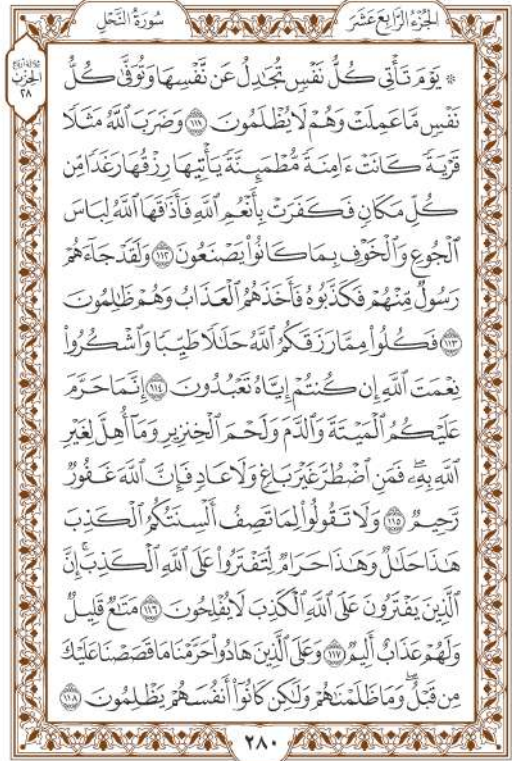 الجُزْءُ الرَّابِعَ عَشَرَ
سُورَةُ النَّحْلِ
ثلاثة أرباع
الحِزْبُ
٢٨
۞ يَوْمَ تَأْتِى كُلُّ نَفْسٍ تُجَٰدِلُ عَن نَّفْسِهَا وَتُوَفَّىٰ كُلُّ
نَفْسٍ مَّا عَمِلَتْ وَهُمْ لَا يُظْلَمُونَ ١١١ وَضَرَبَ ٱللَّهُ مَثَلًا
قَرْيَةً كَانَتْ ءَامِنَةً مُّطْمَئِنَّةً يَأْتِيهَا رِزْقُهَا رَغَدًا مِّن
كُلِّ مَكَانٍ فَكَفَرَتْ بِأَنْعُمِ ٱللَّهِ فَأَذَٰقَهَا ٱللَّهُ لِبَاسَ
ٱلْجُوعِ وَٱلْخَوْفِ بِمَا كَانُوا۟ يَصْنَعُونَ ١١٢ وَلَقَدْ جَآءَهُمْ
رَسُولٌ مِّنْهُمْ فَكَذَّبُوهُ فَأَخَذَهُمُ ٱلْعَذَابُ وَهُمْ ظَٰلِمُونَ
١١٣ فَكُلُوا۟ مِمَّا رَزَقَكُمُ ٱللَّهُ حَلَٰلًا طَيِّبًا وَٱشْكُرُوا۟
نِعْمَتَ ٱللَّهِ إِن كُنتُمْ إِيَّاهُ تَعْبُدُونَ ١١٤ إِنَّمَا حَرَّمَ
عَلَيْكُمُ ٱلْمَيْتَةَ وَٱلدَّمَ وَلَحْمَ ٱلْخِنزِيرِ وَمَآ أُهِلَّ لِغَيْرِ
ٱللَّهِ بِهِۦۖ فَمَنِ ٱضْطُرَّ غَيْرَ بَاغٍ وَلَا عَادٍ فَإِنَّ ٱللَّهَ غَفُورٌ
رَّحِيمٌ ١١٥ وَلَا تَقُولُوا۟ لِمَا تَصِفُ أَلْسِنَتُكُمُ ٱلْكَذِبَ
هَٰذَا حَلَٰلٌ وَهَٰذَا حَرَامٌ لِّتَفْتَرُوا۟ عَلَى ٱللَّهِ ٱلْكَذِبَۚ إِنَّ
ٱلَّذِينَ يَفْتَرُونَ عَلَى ٱللَّهِ ٱلْكَذِبَ لَا يُفْلِحُونَ ١١٦ مَتَٰعٌ قَلِيلٌ
وَلَهُمْ عَذَابٌ أَلِيمٌ ١١٧ وَعَلَى ٱلَّذِينَ هَادُوا۟ حَرَّمْنَا مَا قَصَصْنَا عَلَيْكَ
مِن قَبْلُۖ وَمَا ظَلَمْنَٰهُمْ وَلَٰكِن كَانُوٓا۟ أَنفُسَهُمْ يَظْلِمُونَ ١١٨
٢٨٠